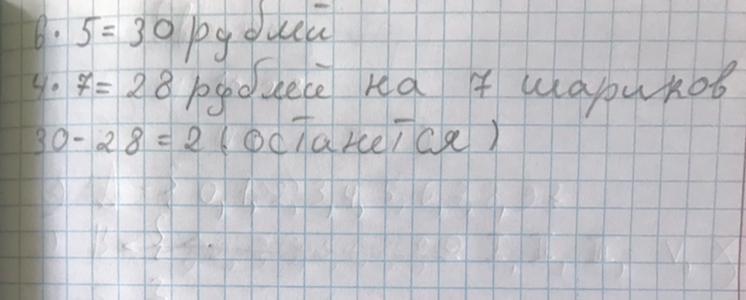 6 · 5 = 30 рублей
4 · 7 = 28 рублей на 7 шариков
30 - 28 = 2 (останется)